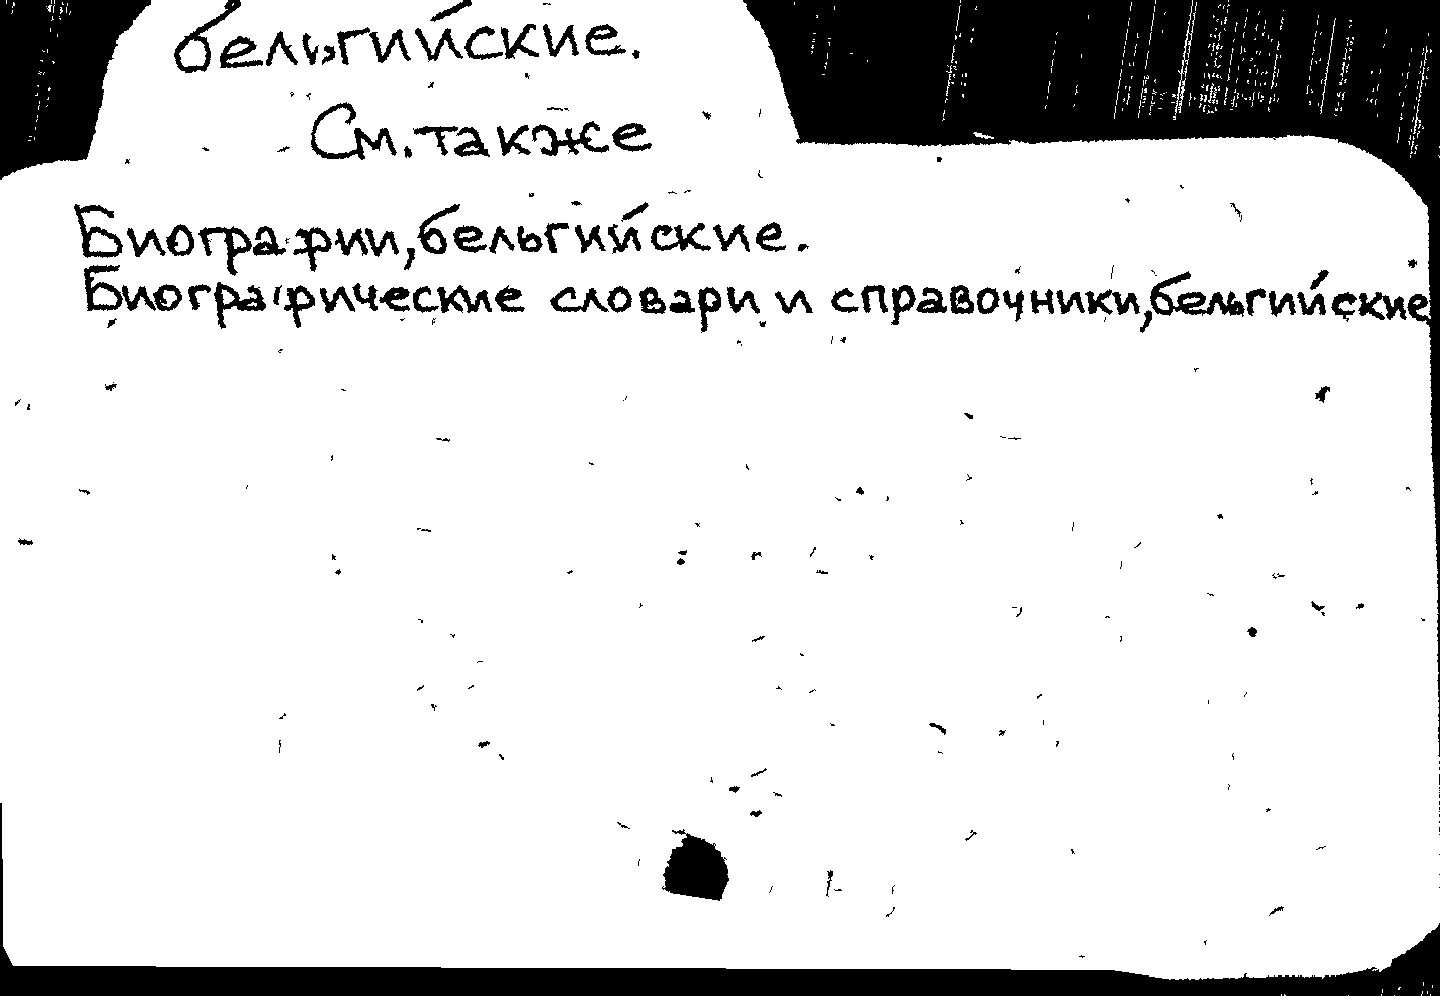 бельгийские.
См. также
Биографии, бельгийские.
Биографические словари и справочники, бельгийские